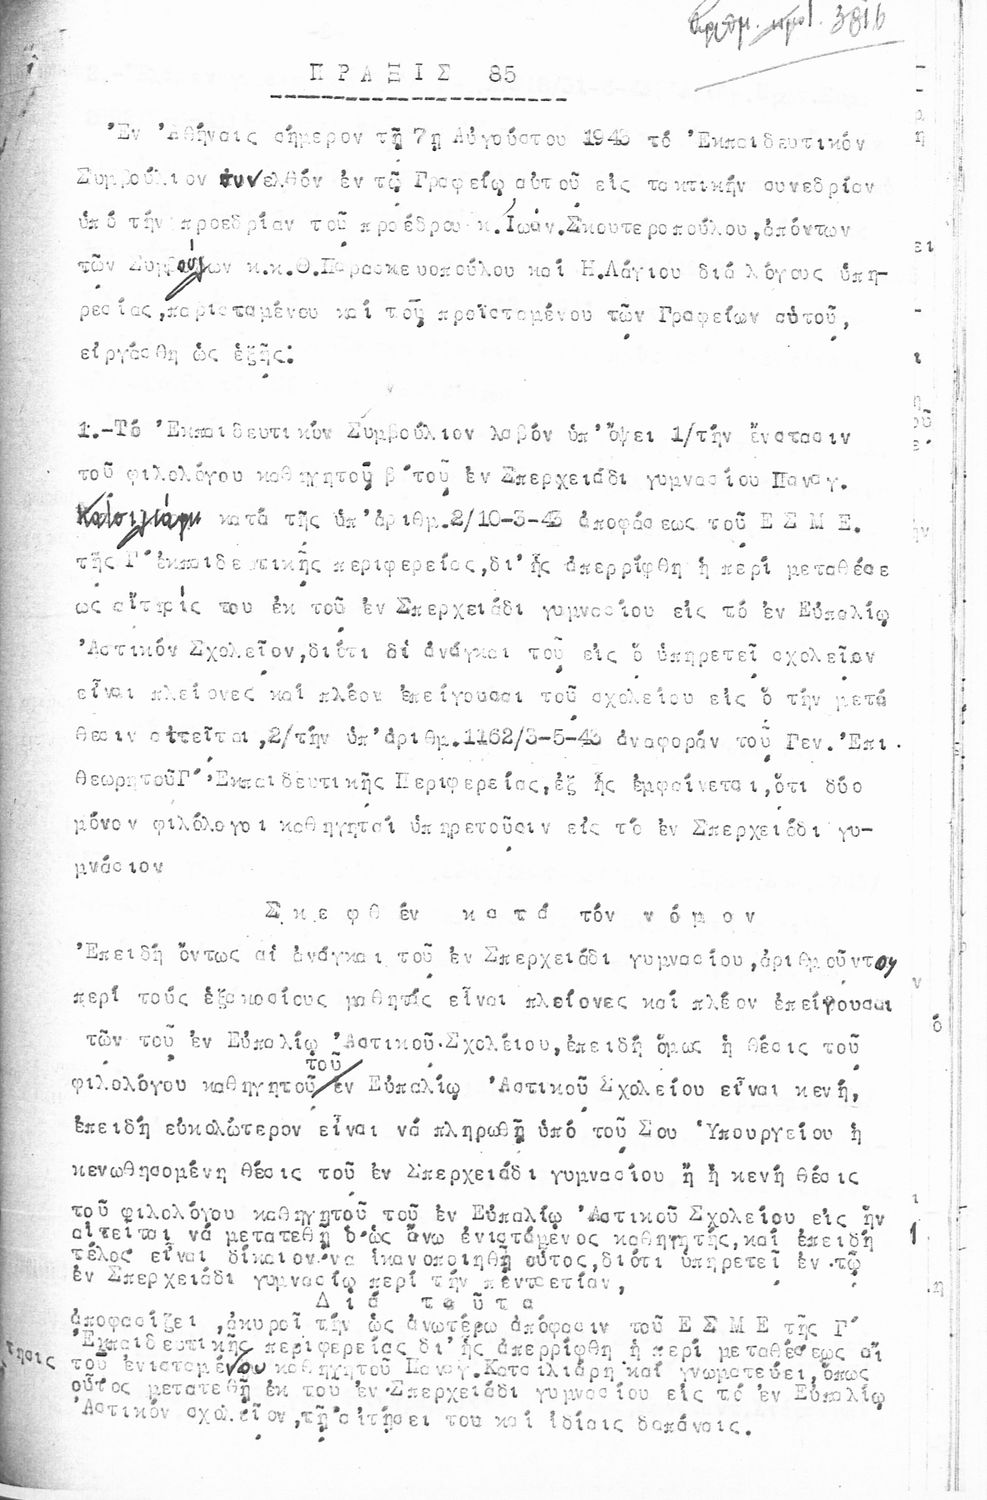 Ἀριθμ. πρωτ. 3816
ΠΡΑΞΙΣ 85
Ἐν Ἀθήναις σήμερον τῇ 7ῃ Αὐγούστου 1943 τό Ἐκπαιδευτικόν
Συμβούλιον συνελθόν ἐν τῷ Γραφείῳ αὐτοῦ εἰς τακτικήν συνεδρίαν
ὑπό τήν προεδρίαν τοῦ προέδρου κ. Ἰωάν. Σκουτεροπούλου, ἀπόντων
τῶν Συμβούλων κ.κ. Θ. Παρασκευοπούλου καί Η. Λάγιου διά λόγους ὑπη-
ρεσίας, παρισταμένου καί τοῦ προϊσταμένου τῶν Γραφείων αὐτοῦ,
εἰργάσθη ὡς ἑξῆς:
1.-Τό Ἐκπαιδευτικόν Συμβούλιον λαβόν ὑπ' ὄψει 1/τήν ἔνστασιν
τοῦ φιλολόγου καθηγητοῦ β΄ τοῦ ἐν Σπερχειάδι γυμνασίου Παναγ.
Κατσιλιάρη κατά τῆς ὑπ' ἀριθμ. 2/10-3-43 ἀποφάσεως τοῦ Ε Σ Μ Ε.
τῆς Γ΄ ἐκπαιδευτικῆς περιφερείας, δι' ἧς ἀπερρίφθη ἡ περί μεταθέσε
ως αἴτησίς του ἐκ τοῦ ἐν Σπερχειάδι γυμνασίου εἰς τό ἐν Εὐπαλίῳ
Ἀστικόν Σχολεῖον, διότι δί ἀνάγκαι τοῦ εἰς ὅ ὑπηρετεῖ σχολεῖον
εἶναι πλείονες καί πλέον ἐπείγουσαι τοῦ σχολείου εἰς ὅ τήν μετά
θεσιν αἰτεῖται, 2/τήν ὑπ' ἀριθμ. 1162/3-5-43 ἀναφοράν τοῦ Γεν. Ἐπι.
θεωρητοῦ Γ΄ Ἐκπαιδευτικῆς Περιφερείας, ἐξ ἧς ἐμφαίνεται, ὅτι δύο
μόνον φιλόλογοι καθηγηταί ὑπηρετοῦσιν εἰς τό ἐν Σπερχειάδι γυ-
μνάσιον
Σ κ ε φ θ έν κ α τ ά τόν ν ό μ ο ν
Ἐπειδή ὄντως αἱ ἀνάγκαι τοῦ ἐν Σπερχειάδι γυμνασίου, ἀριθμοῦντος
περί τούς ἑξακοσίους μαθητάς εἶναι πλείονες καί πλέον ἐπείγουσαι
τῶν τοῦ ἐν Εὐπαλίῳ Ἀστικοῦ Σχολείου, ἐπειδή ὅμως ἡ θέσις τοῦ
τοῦ
φιλολόγου καθηγητοῦ ἐν Εὐπαλίῳ Ἀστικοῦ Σχολείου εἶναι κενή,
ἐπειδή εὐκολώτερον εἶναι νά πληρωθῇ ὑπό τοῦ Σου Ὑπουργείου ἡ
κενωθησομένη θέσις τοῦ ἐν Σπερχειάδι γυμνασίου ἤ ἡ κενή θέσις
τοῦ φιλολόγου καθηγητοῦ τοῦ ἐν Εὐπαλίῳ Ἀστικοῦ Σχολείου εἰς ἥν
αἰτεῖται νά μετατεθῇ ὁ ὡς ἄνω ἐνιστάμενος καθηγητής, καί ἐπειδή
τέλος εἶναι δίκαιον νά ἱκανοποιηθῇ οὗτος, διότι ὑπηρετεῖ ἐν τῷ
ἐν Σπερχειάδι γυμνασίῳ περί τήν πενταετίαν,
Δ ι ά τ α ῦ τ α
ἀποφασίζει, ἀκυροῖ τήν ὡς ἀνωτέρω ἀπόφασιν τοῦ Ε Σ Μ Ε τῆς Γ΄
Ἐκπαιδευτικῆς περιφερείας δι' ἧς ἀπερρίφθη ἡ περί μεταθέσεως αἴ
τησις τοῦ ἐνισταμένου καθηγητοῦ Παναγ. Κατσιλιάρη καί γνωματεύει, ὅπως
οὗτος μετατεθῇ ἐκ τοῦ ἐν Σπερχειάδι γυμνασίου εἰς τό ἐν Εὐπαλίῳ
Ἀστικόν σχολεῖον, τῇ αἰτήσει του καί ἰδίαις δαπάναις.